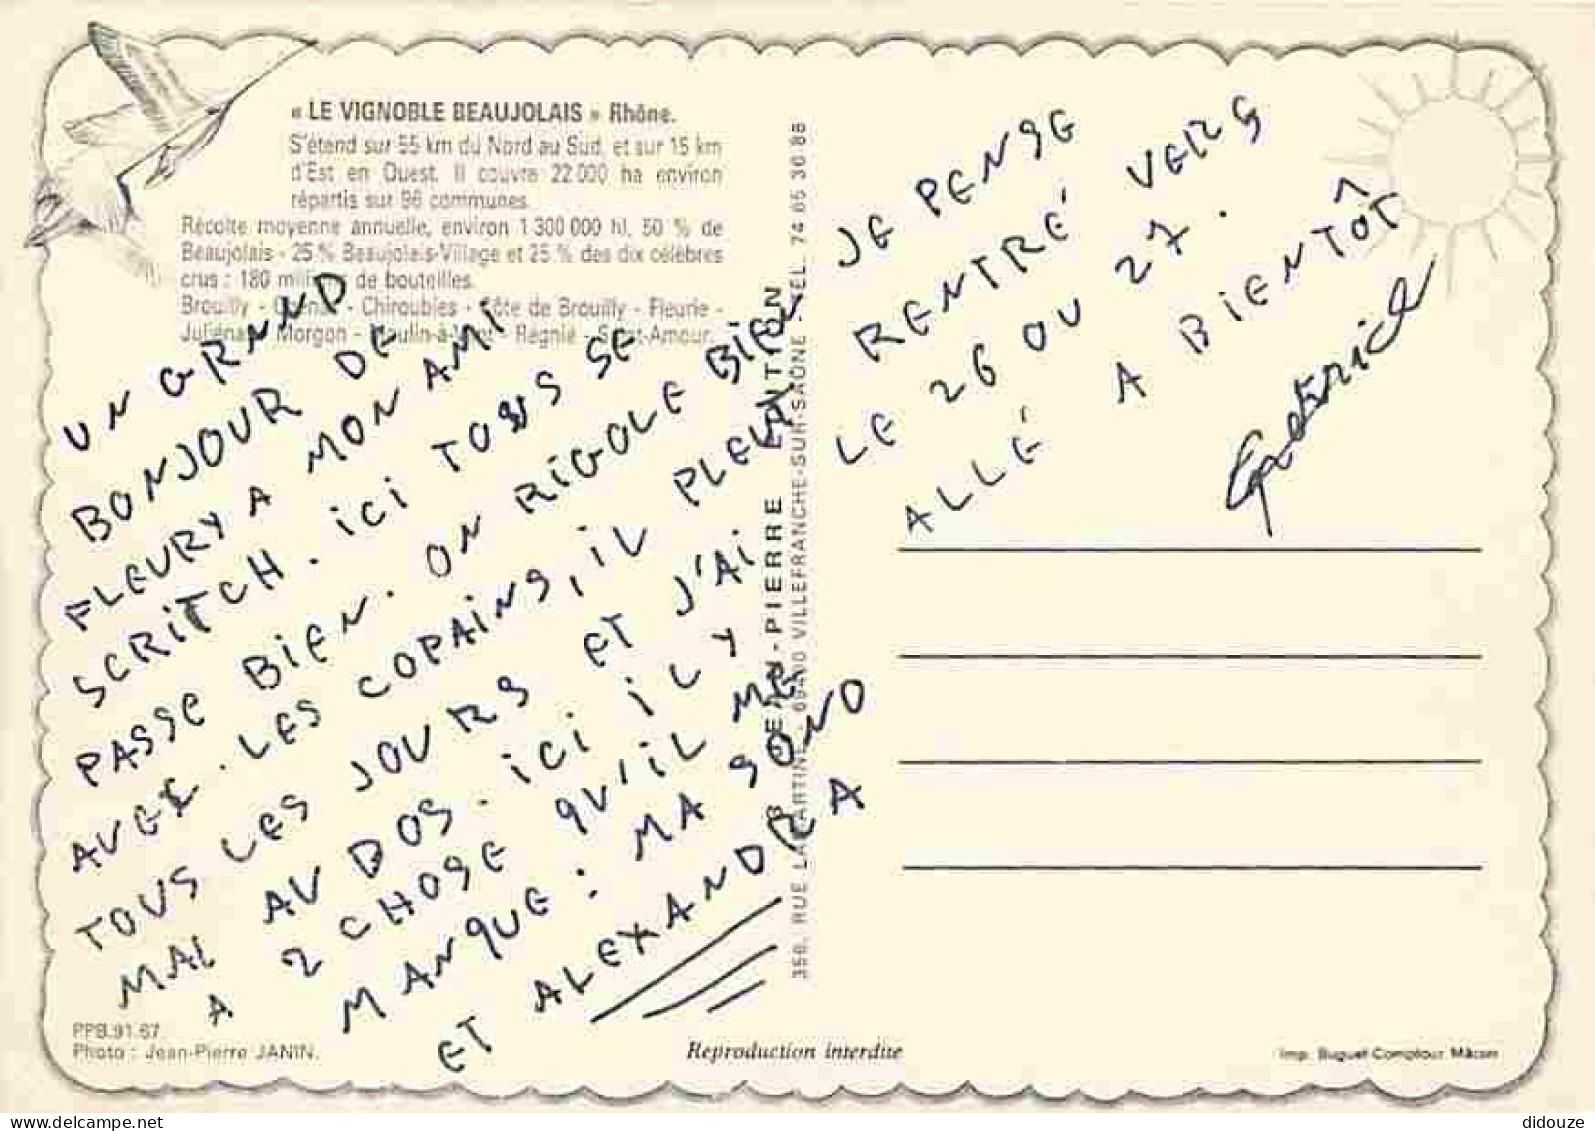 « LE VIGNOBLE BEAUJOLAIS » Rhône.
S'étend sur 55 km du Nord au Sud, et sur 15 km
d'Est en Ouest. Il couvre 22 000 ha environ
répartis sur 96 communes.
Récolte moyenne annuelle, environ 1 300 000 hl. 50 % de
Beaujolais - 25 % Beaujolais-Village et 25 % des dix célèbres
crus : 180 millions de bouteilles.
Brouilly - Chénas - Chiroubles - Côte de Brouilly - Fleurie -
Juliénas - Morgon - Moulin-à-Vent - Régnié - Saint-Amour.
UN GRAND
BONJOUR DE
FLEURY A MON AMI
SCRITCH. ICI TOUS SE
PASSE BIEN. ON RIGOLE BIEN
AVEC. LES COPAINS, IL PLEUT
TOUS LES JOURS ET J'AI
MAL AU DOS. ICI IL Y
A 2 CHOSE QU'IL ME
MANQUE : MA SONO
ET ALEXANDRA
JE PENSE
RENTRÉ VERS
LE 26 OU 27.
ALLÉ A BIENTÔT
JEAN-PIERRE EDITION
358, RUE LAMARTINE - 69400 VILLEFRANCHE-SUR-SAÔNE - TEL. 74 65 30 88
PPB.91.67
Photo : Jean-Pierre JANIN.
Reproduction interdite
Imp. Buguet-Comptour Mâcon
delcampe.net
didouze